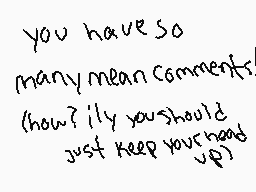 you have so
many mean comments!
(how? ily you should
just keep your head
up)